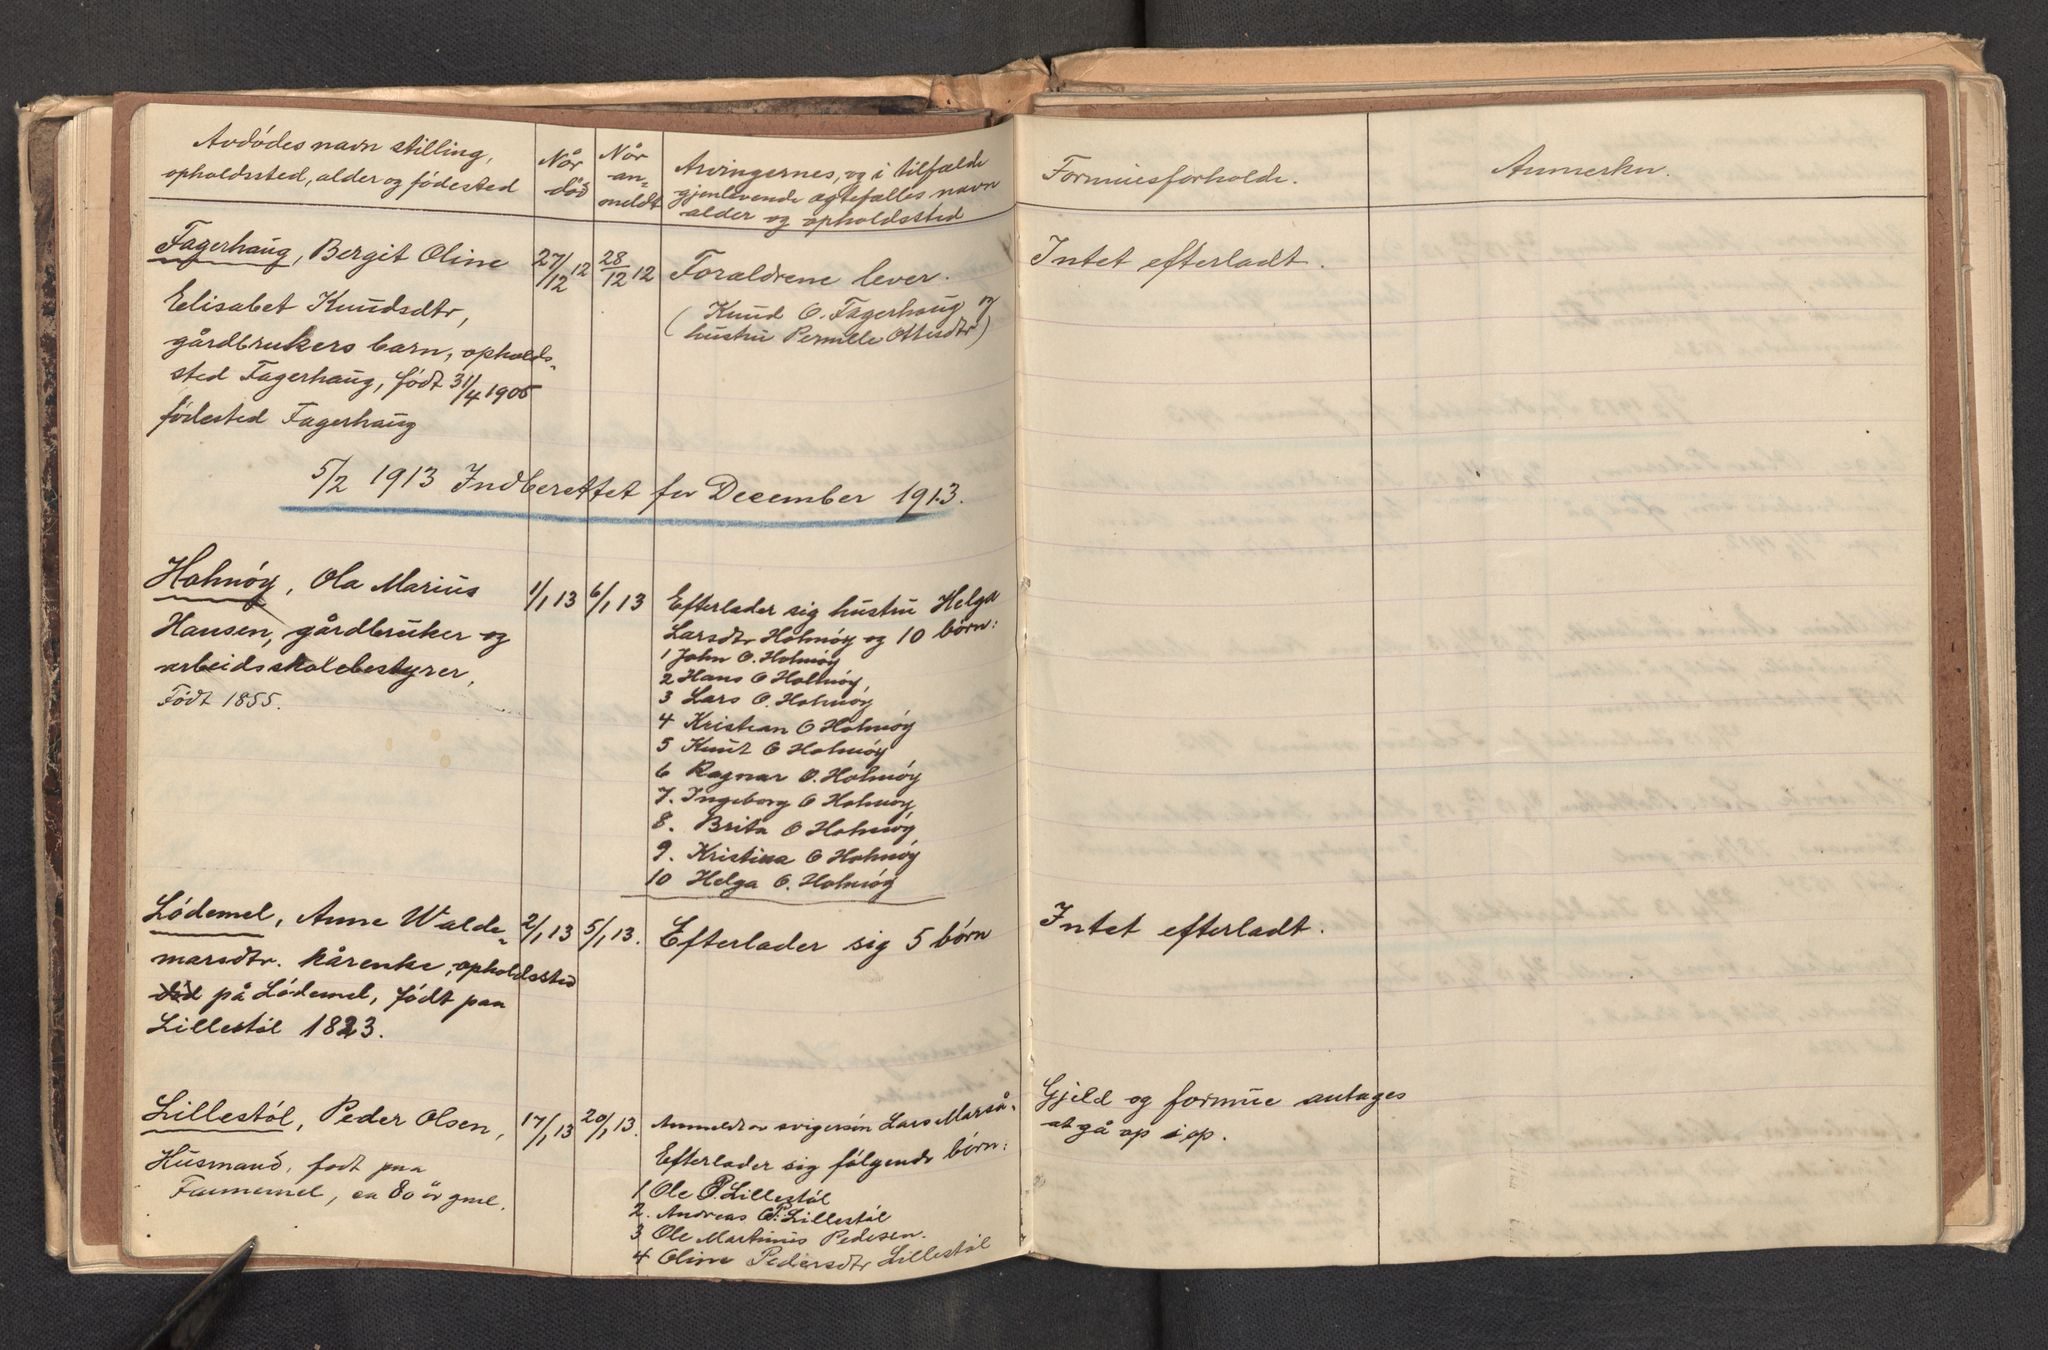 Avdødes navn stilling,
opholdssted, alder og fødested
Når
død
Når
an-
meldt
Arvingernes, og i tilfælde
gjenlevende ægtefælles navn
alder og opholdssted
Formuesforholde.
Anmerkn.
Fagerhaug, Bergit Oline
Elisabet Knudsdtr,
gårdbrukers barn, opholds-
sted Fagerhaug, født 31/4 1906
fødested Fagerhaug
27/12 12
28/12 12
Forældrene lever.
(Knud O. Fagerhaug og
hustru Pernille Ottesdtr)
Intet efterladt.
5/2 1913 Indberettet for December 1913.
Holmøy, Ola Marius
Hansen, gårdbruker og
arbeidsskolebestyrer,
Født 1855.
1/1 13
6/1 13
Efterlader sig hustru Helga
Larsdtr Holmøy og 10 børn:
1 John O. Holmøy
2 Hans O Holmøy
3 Lars O. Holmøy
4 Kristian O Holmøy
5 Knut O Holmøy
6 Ragnar O. Holmøy
7. Ingeborg O Holmøy
8. Brita O Holmøy
9. Kristina O Holmøy
10 Helga O. Holmøy
Lødemel, Anne Walde-
marsdtr. kårenke, opholdssted
død på Lødemel, født paa
Lillestøl 1823.
2/1 13
5/1 13.
Efterlader sig 5 børn
Intet efterladt.
Lillestøl, Peder Olsen,
Husmand, født paa
Faunemel, ca 80 år gml.
17/1 13
20/1 13.
Anmeldt av svigersøn Lars Marså.
Efterlader sig følgende børn:
1 Ole P. Lillestøl
2. Andreas P. Lillestøl
3 Ole Martinus Pedersen.
4 Oline Pedersdtr Lillestøl
Gjeld og formue antages
at gå op i op.